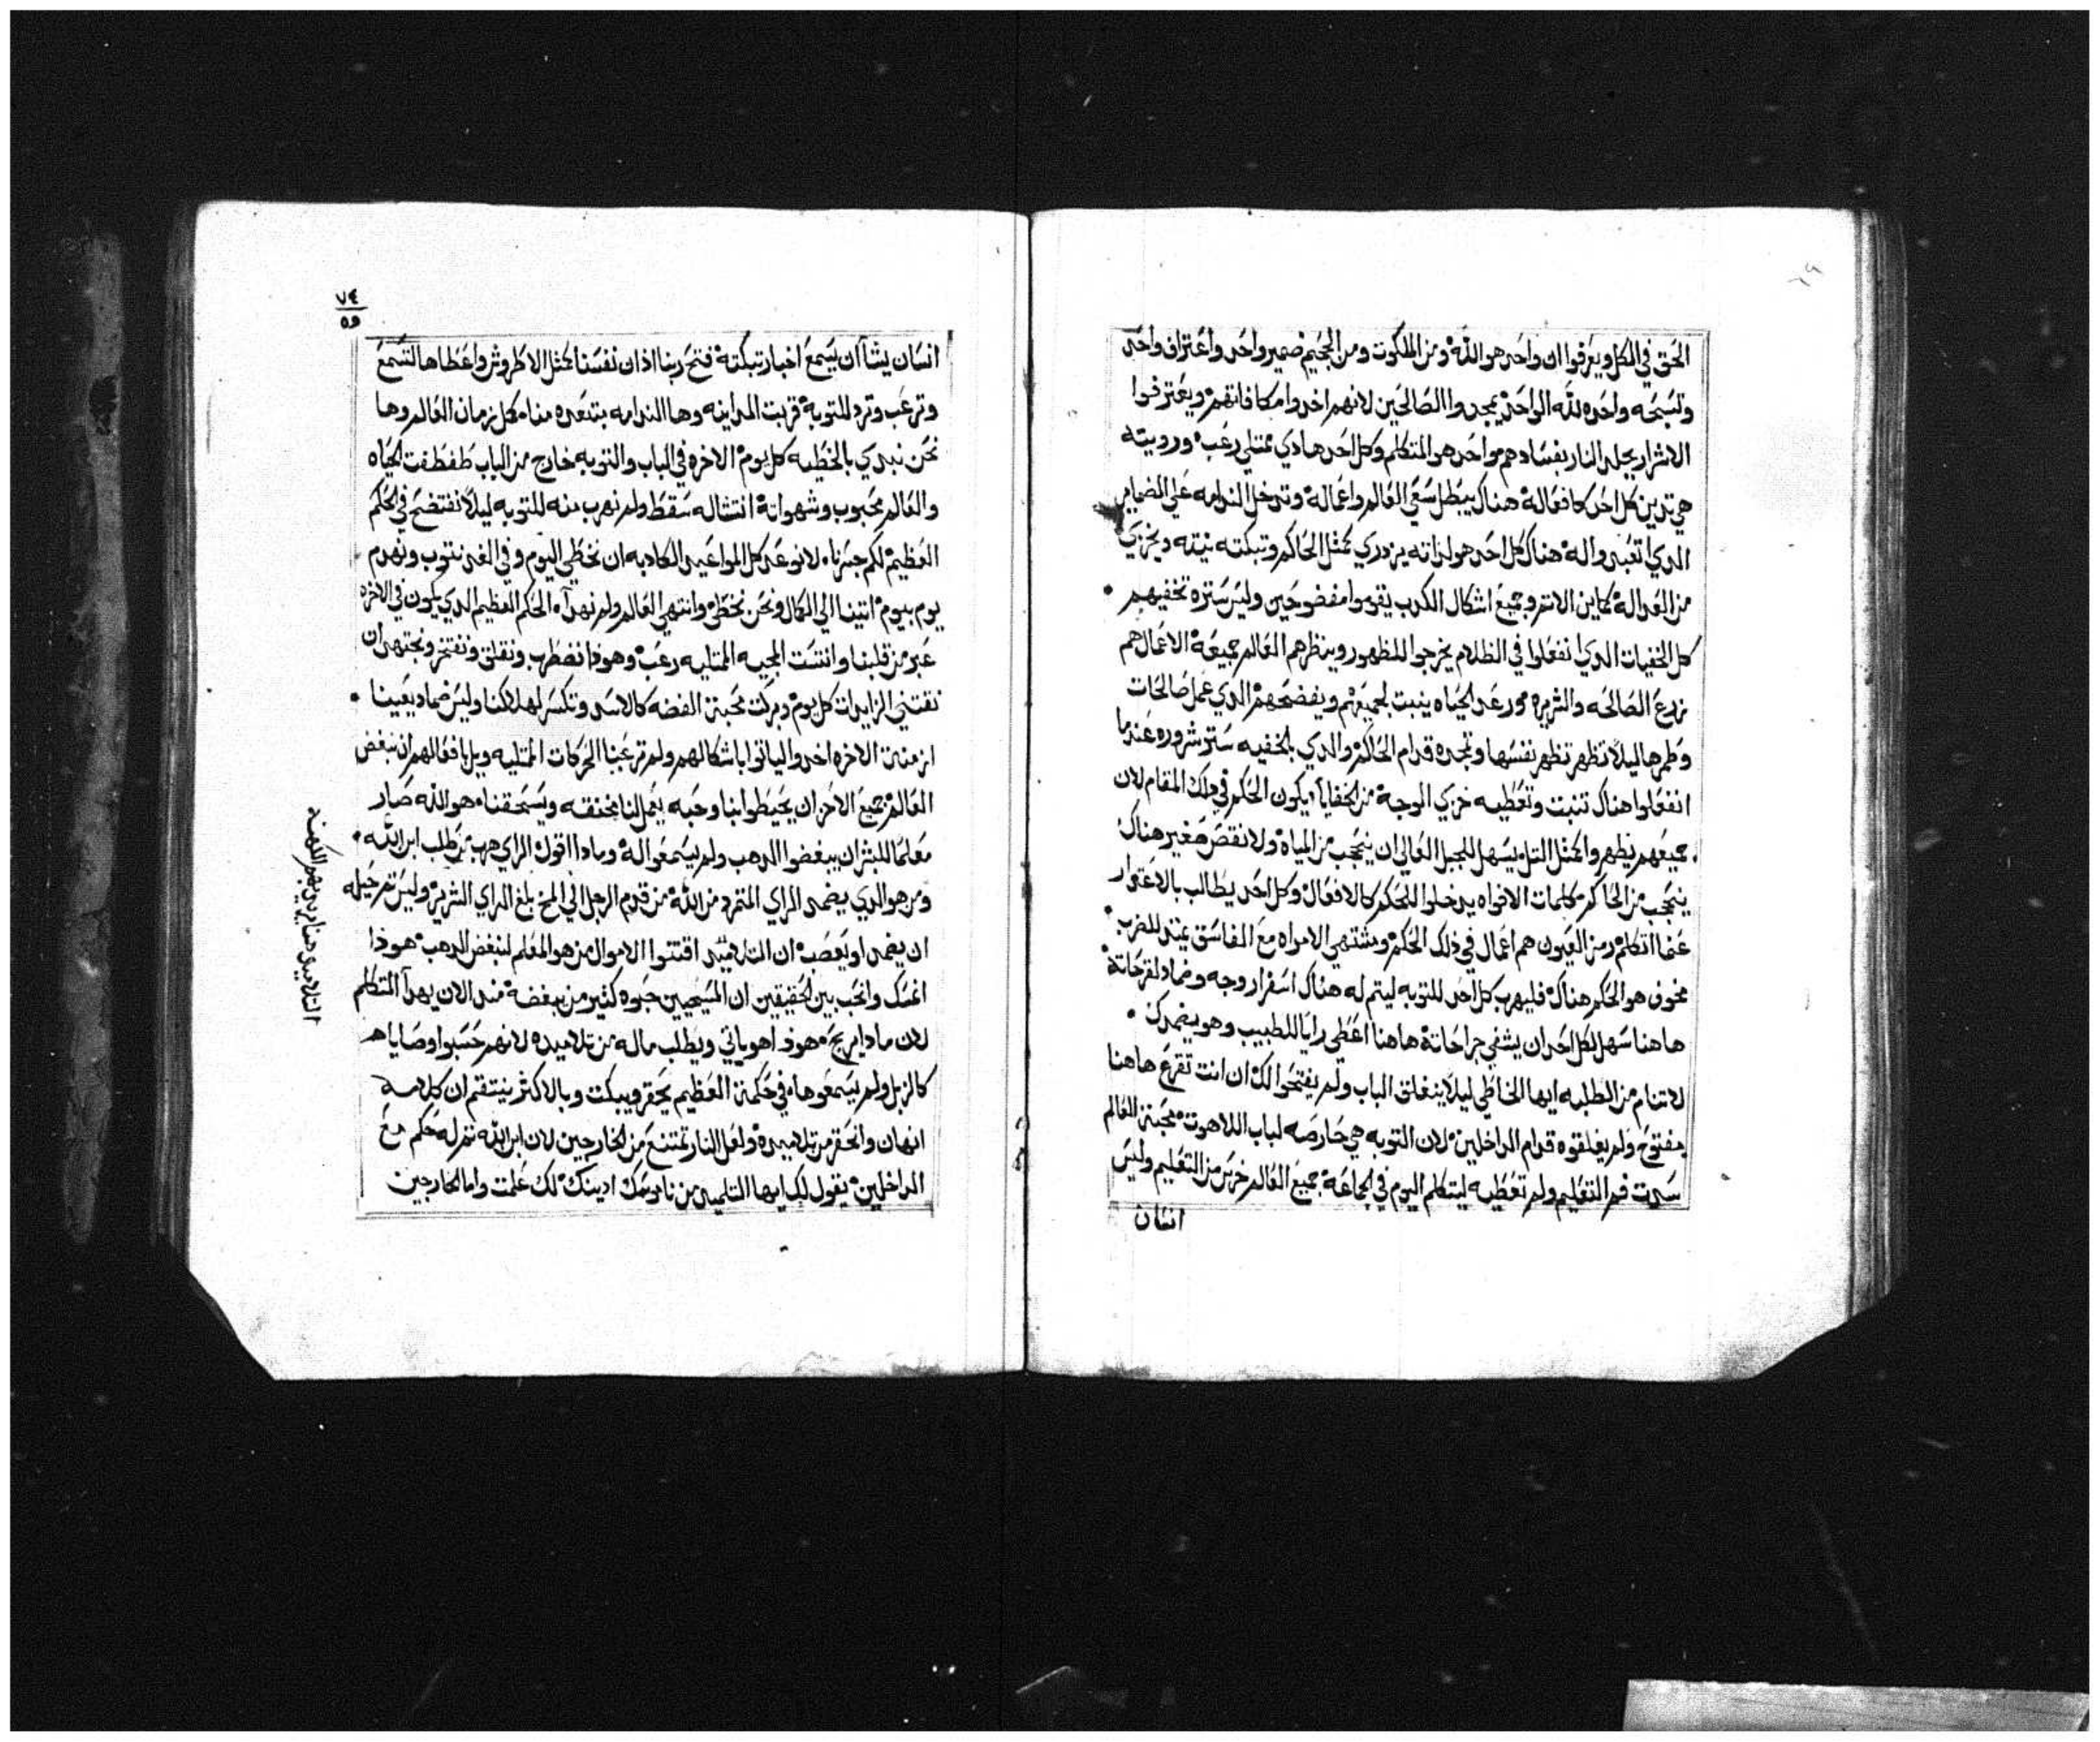 الحق في الكل ويعرفوا ان واحد هو الله ومن الملكوت ومن الجحيم ضمير واحد واعتراف واحد
وتسبحه واحده لله الواحد يمجدوا الصالحين لانهم اخدوا مكافاتهم ويعترفوا
الاشرار بجلد النار بفسادهم واحد هو المتكلم وكل احد هادي ممتلي رعب وروييته
هي تدين كل احد كافعاله هناك يبطل سعي العالم واعماله وتدخل الندامه علي الضمامير
الدي اتعبدوا له هناك كل احد هو لداته يزدري كمثل الحاكم وتبكته نيته ويخزي
من العداله كماين الاتم وجميع اشكال الكدب يقوموا مفضوحين وليس ستره تخفيهم
كل الخفيات الدي انفعلوا في الظلام يخرجوا للظهور وينظرهم العالم جميعه الاعمال هم
زرع الصالحه والشريره ورعد الحياه ينبت لجميعهم ويفضحهم الدي عمل صالحات
وطمرها ليلا تظهر تظهر نفسها وتمجده قدام الحاكم والدي بالخفيه ستر شروره عندما
انفعلوا هناك تنبت وتعطيه خزي الوجه من الخفايا يكون الحكم في دلك المقام لان
جميعهم يظهروا كمثل التل يسهل للجبل العالي ان ينحجب من المياه ولا نقص صغير هناك
ينحجب من الحاكم كلمات الافواه يدخلوا للحكم كالافعال وكل احد يطالب بالاعتدار
عما اتكلم رمز العيون هم اعمال في دلك الحكم ومشتهي الامراه مع الفاسق يمتد للضرب
مخوف هو الحكم هناك فليهرب كل احد للتوبه ليتم له هناك اسفرار وجه وضماد لقرحاته
هاهنا سهل لكل احد ان يشفي جراحاته هاهنا اعطي رايا للطبيب وهو يضمدك
لا تنام من الطلبه ايها الخاطي ليلا ينغلق الباب ولم يفتحوا لك ان انت تقرع هاهنا
مفتوح ولم يغلقوه قدام الداخلين لان التوبه هي حارصه لباب اللاهوت محبة العالم
سدت فم التعليم ولم تعطيه ليتكلم اليوم في الجماعه جميع العالم خرس من التعليم وليس
انسان
٧٤
٥٩
انسان يشا ان يسمع اخبار تبكته فتح ربنا ادان نفسنا كمثل الاطروش واعطاها لتسمع
وترعب وترد للتوبه قربت المداينه وها الندامه بتتعده منا كل زمان العالم وها
نحن نبدي بالخطيه كل يوم الاخره في الباب والتوبه خارج من الباب طفطفت الحياه
والعالم محبوب وشهواته انتشاله سقط ولم نهرب منه للتوبه ليلا نفتضح في الحكم
العظيم لكم جسرنا لانوعد كل المواعيد الكادبه ان نخطي اليوم وفي الغد نتوب ونهدم
يوم بيوم اتينا الي الكمال ونحن نخطي وانتهي العالم ولم نهدا الحكم العظيم الدي يكون في الاخره
عبر من قلبنا وانتست المجيه الممتليه رعب وهودا نضطرب ونقلق ونفتخر ونجتهد ان
نقتني الزايدات كل يوم وبركت محبة الفضه كالاسد وتكسر لهلاكنا وليس ضماد يعينا
ازمنة الاخره اخدوا لياتوا باشكالهم ولم ترعبنا الحركات الممتليه ويل بافعالهم ان نبغض
العالم جميع الاحزان يحيطوا بنا وحبه يعمل لنا مخنقه ويستحقنا هو الله صار
معلما للبشر ان يبغضوا الدهب ولم يسمعوا له ومادا اقول الراي هرب من طلب ابن الله
ومن هو الدي يضمد الراي المتمرد من الله من قدم الرجل الي المخ بلغ الراي الشرير وليس تم حيله
ان يضمد او يعصب ان التلاميد اقتنوا الاموال من هو المعلم لنبغض الدهب هودا
انمسك وانحب بين الحقيقين ان المسيحيين حبوه كثير من يبغضه مند الان يهدا المتكلم
لان مادا يربح هودا هو ياتي ويطلب ماله من تلاميده لانهم حسبوا وصاياه
كالزبل ولم يسمعوها في حكمة العظيم يحقر ويبكت وبالاكثر ينتقم ان كلامه
انهان وانحقر من تلاميده ولعل النار تمتنع من الخارجين لان ابن الله تم له حكم مع
الداخلين يقول لك ايها التلميد من ناموسك ادينك لك علمت واما الخارجين